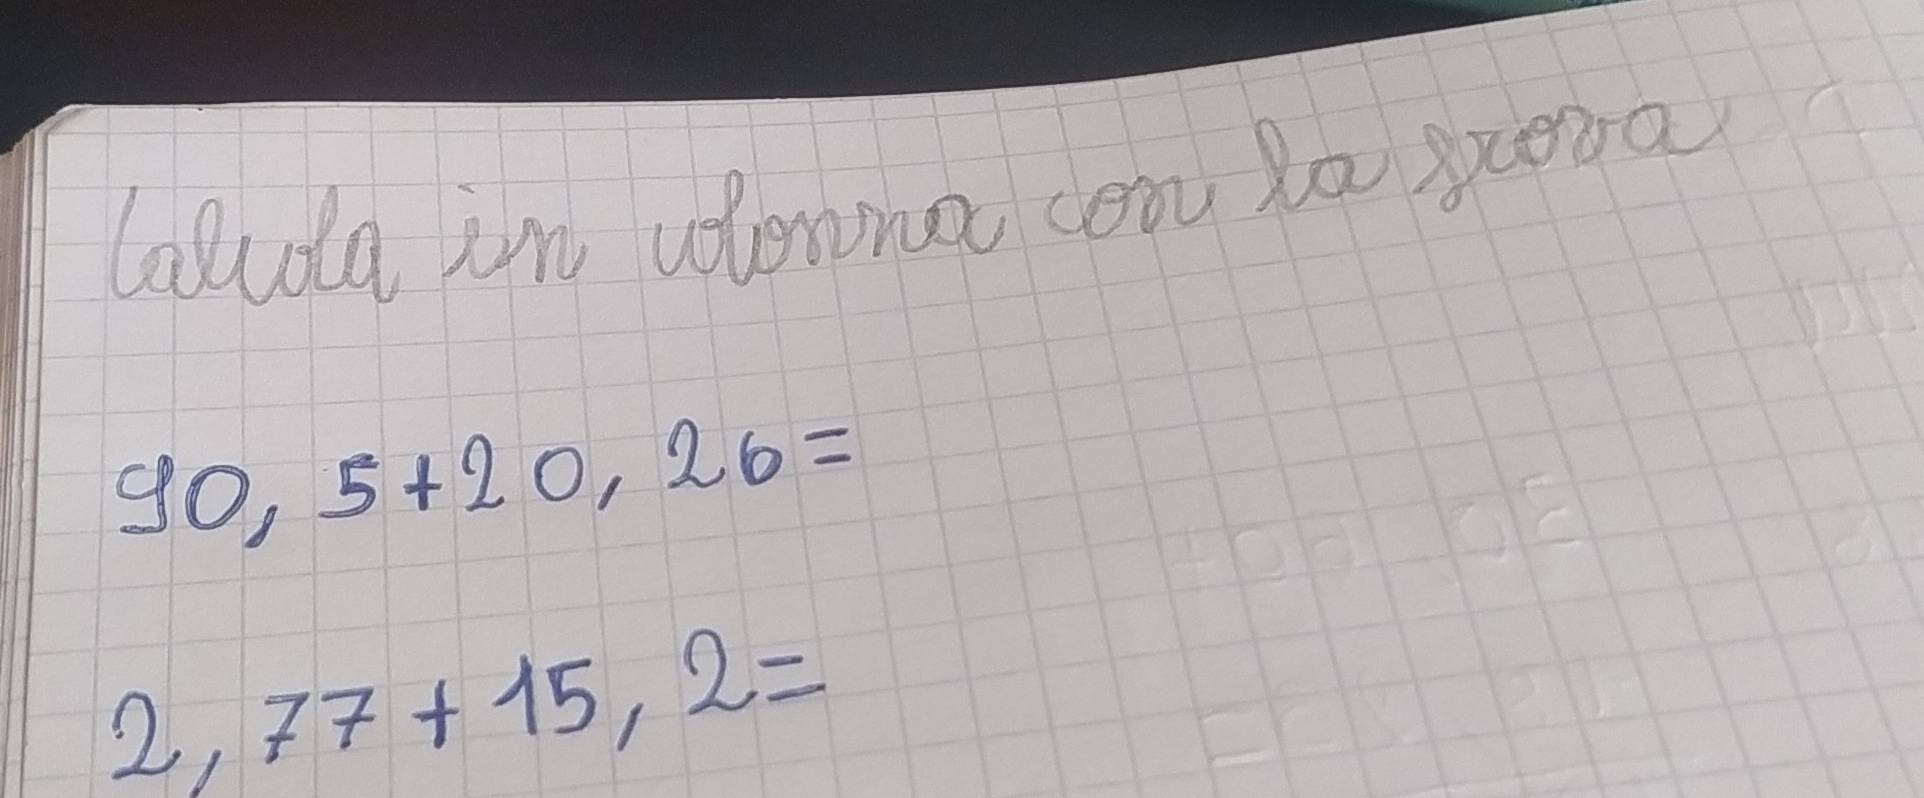 Calcola in colonna con la prova
90,5+20,26=
2,77+15,2=